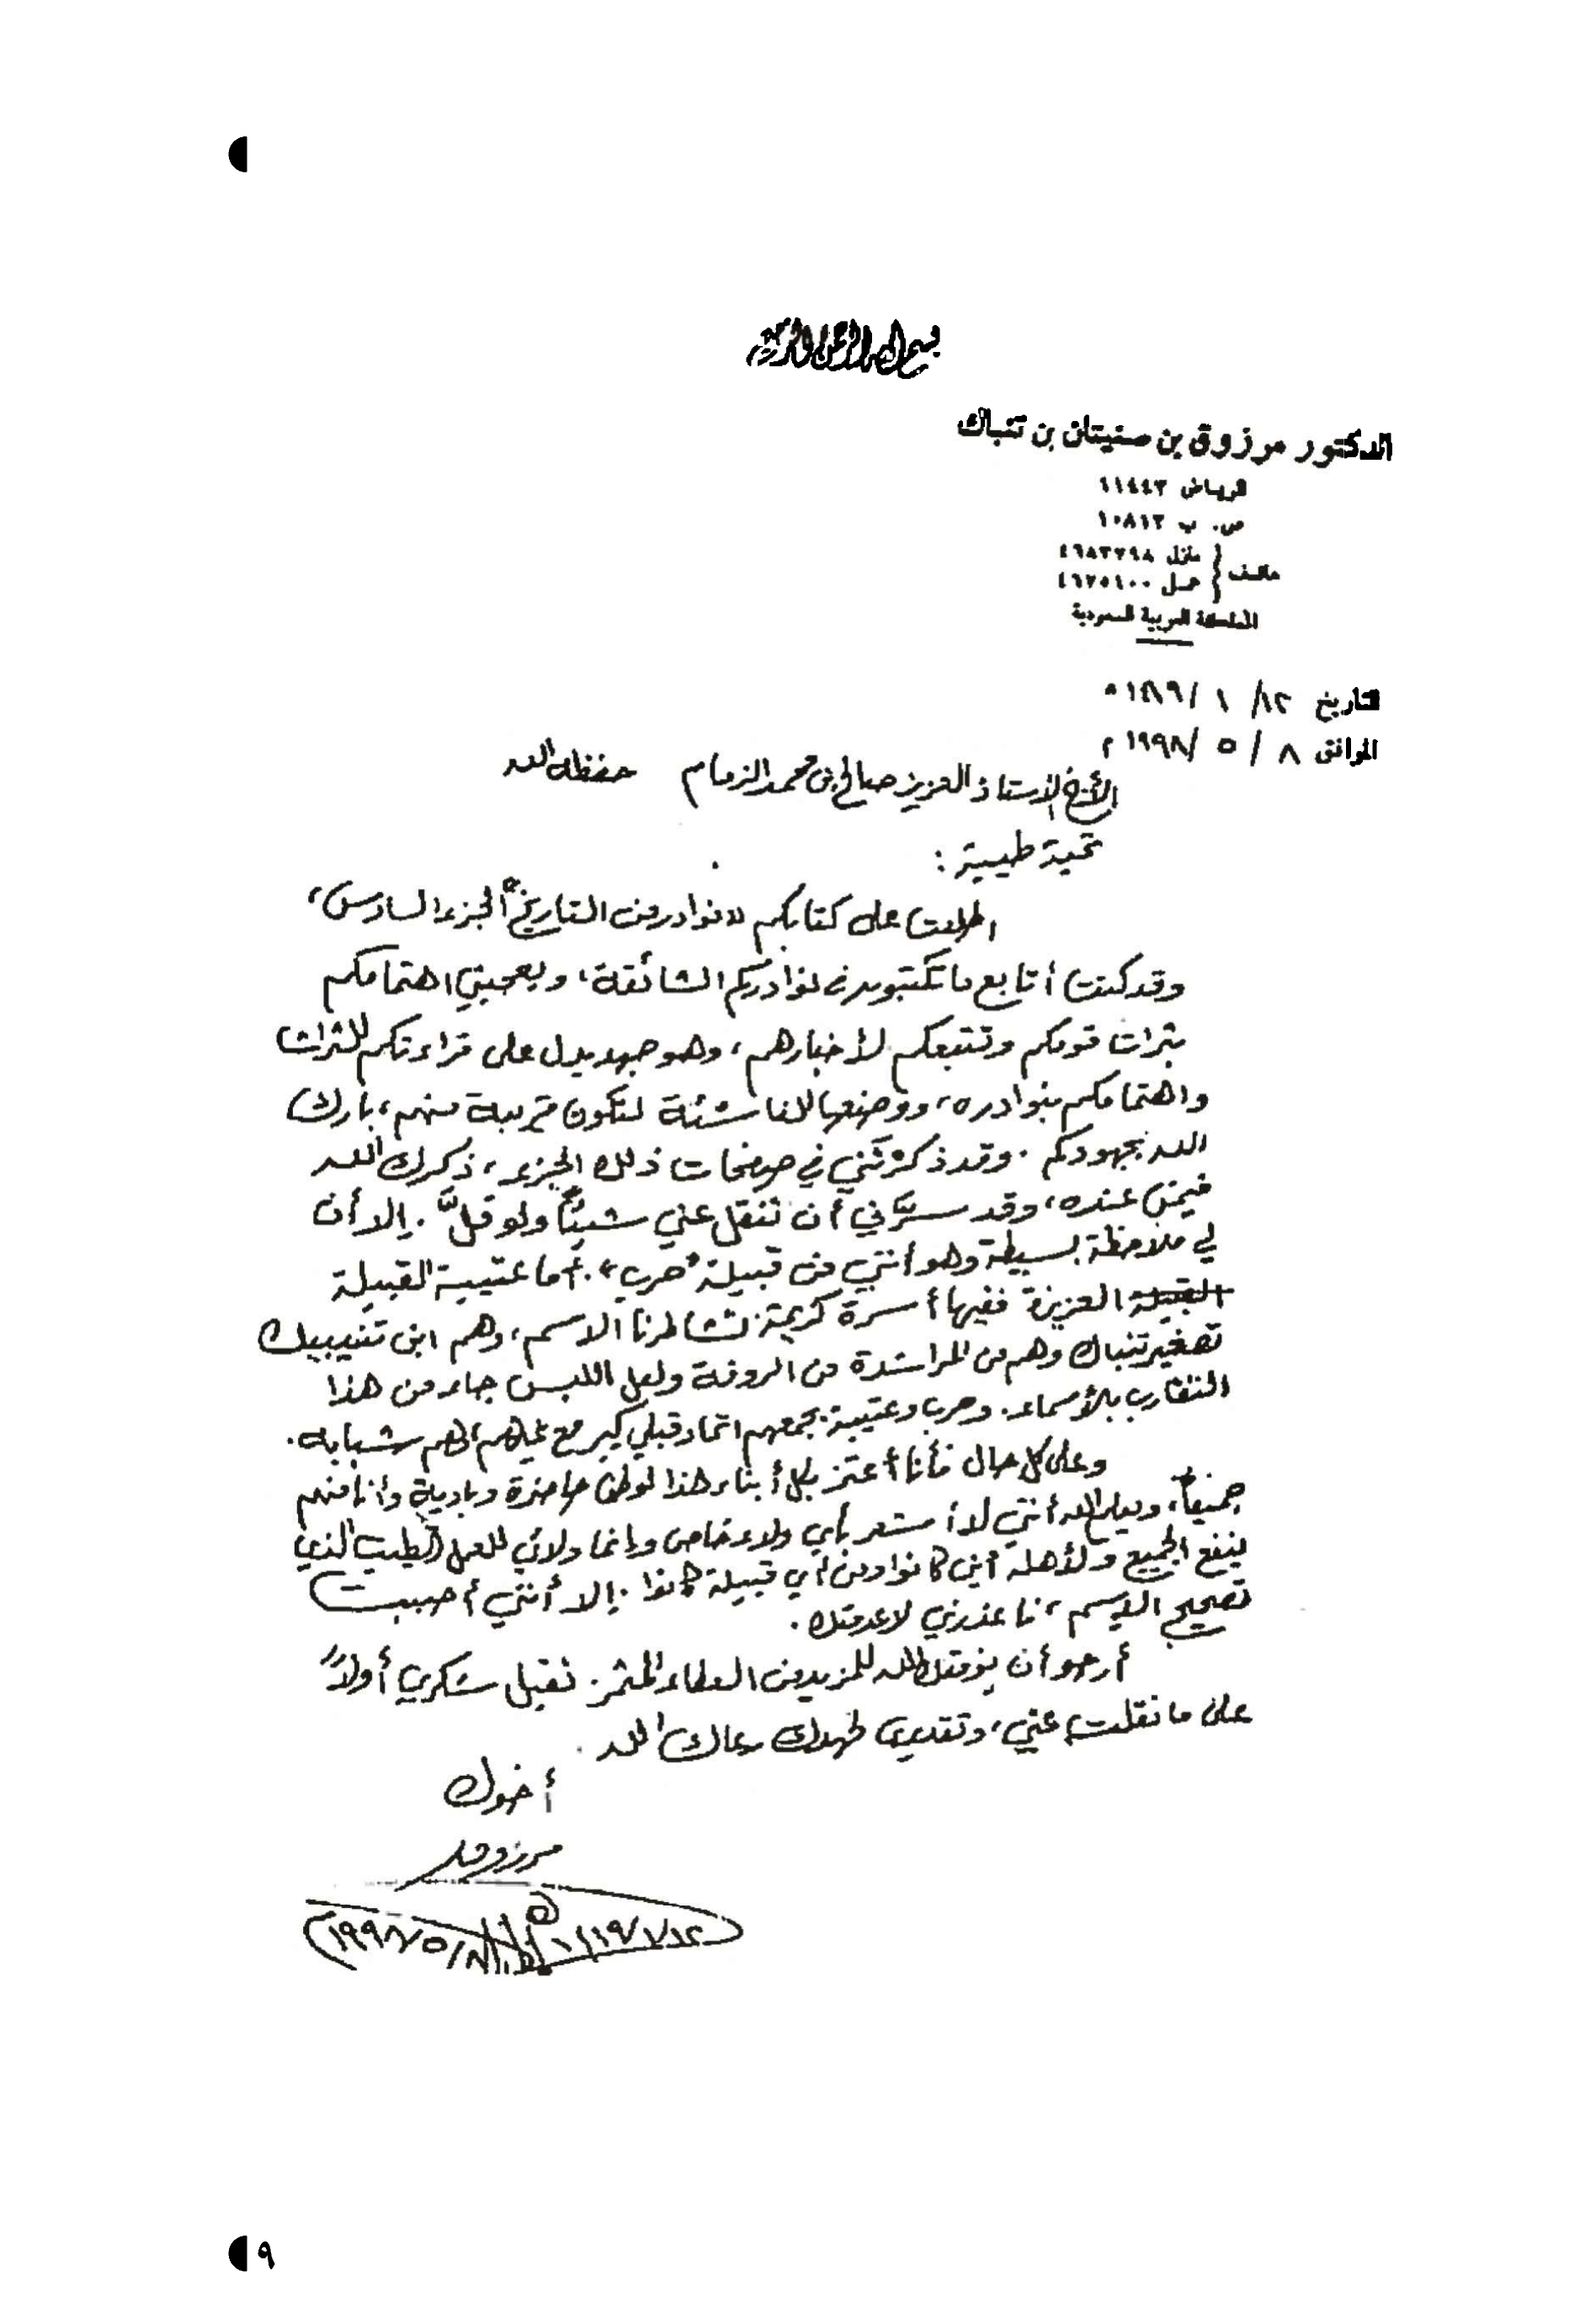 بسم الله الرحمن الرحيم
الدكتور مرزوق بن صنيتان بن تنباك
الرياض ١١٤٤٣
ص. ب ١٠٨١٣
هاتف { منزل ٤٦٨٣٢٩٨
عمل ٤٦٧٥١٠٠
المملكة العربية السعودية
التاريخ ١٢/ ١ /١٤١٩ هـ
الموافق ٨ / ٥ /١٩٩٨ م
الأخ الأستاذ العزيز صالح بن محمد الزمام حفظه الله
تحية طيبة :
اطلعت على كتابكم «نوادر من التاريخ» الجزء السادس،
وقد كنت أتابع ما تكتبون من نوادركم الشائقة، ويعجبني اهتمامكم
بتراث قومكم وتتبعكم لأخبارهم، وهو جهد يدل على قراءتكم للتراث
واهتمامكم بنوادره، ووضعها للناشئة لتكون قريبة منهم، بارك
الله بجهودكم. وقد ذكرتني في صفحات ذلك الجزء، ذكرك الله
فيمن عنده، وقد سرّني أن تنقل عني شيئاً ولو قلّ. إلا أن
لي ملاحظة بسيطة وهو أنني من قبيلة "حرب". أما عتيبة القبيلة
القبيلة العزيزة ففيها أسرة كريمة تشاطرنا الاسم، وهم ابن تنيبيك
تصغير تنباك وهم من المراشدة من الروقة ولعل اللبس جاء من هذا
التقارب بالأسماء. وحرب وعتيبة يجمعهم اتحاد قبلي كبير مع غيرهم هم شبابه.
وعلى كل حال فأنا أعتز بكل أبناء هذا الوطن حاضرة وبادية وأنا منهم
جميعاً، ويعلم الله أنني لا أستشعر بأي ولاء خاص وإنما ولائي للعمل الطيب الذي
ينفع الجميع ولأهله أين كانوا ومن أي قبيلة كانوا. إلا أنني أحببت
تصحيح الاسم، فاعذرني لا عدمتك.
أرجو أن يوفقك الله للمزيد من العطاء المثمر. تقبل شكري أولاً
على ما نقلت عني، وتقديري لجهدك رعاك الله.
أخوك
مرزوق
١٢/١/١٤١٩هـ ٨/٥/١٩٩٨م
٩